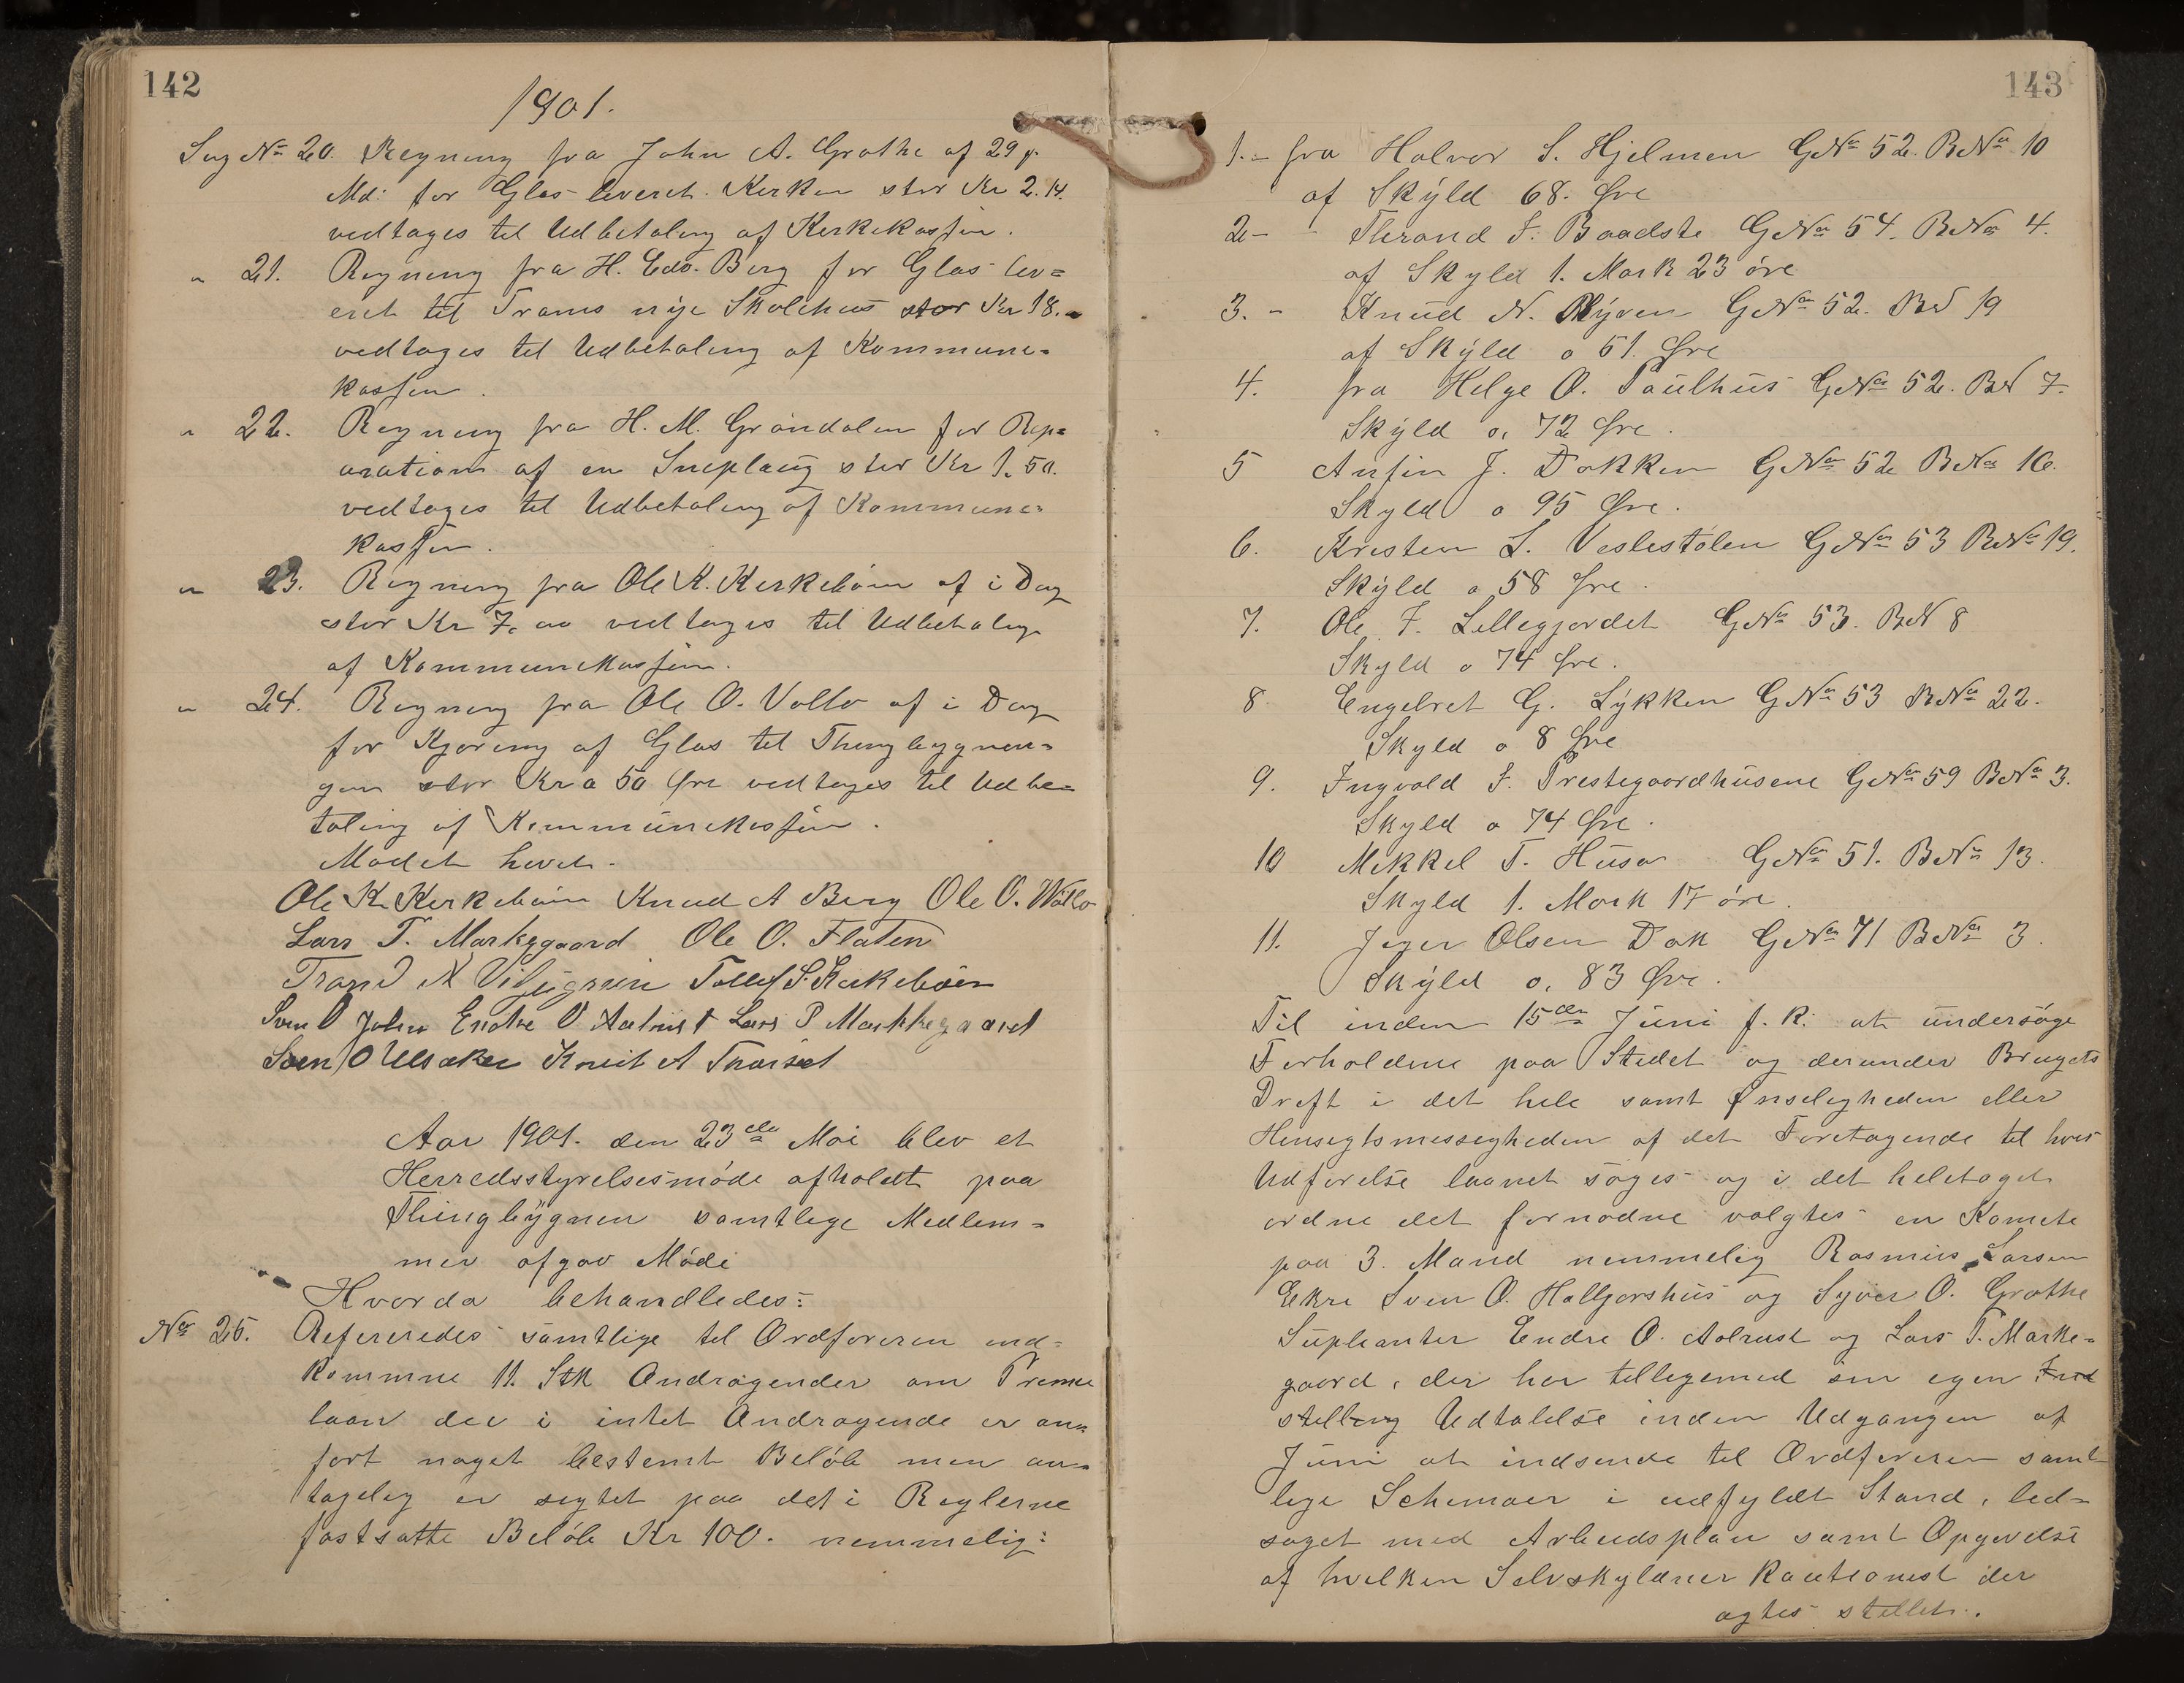 142
1901.
Sag No 20. Regning fra John A. Grøthe af 29 p.
Md: for Glas leveret. Kirken stor Kr 2.14.
vedtages til Udbetaling af Kirkekassen.
" 21. Regning fra H. Edv. Berg for Glas lev=
eret til Trams nye Skolehus stor Kr 18.-
vedtages til Udbetaling af Kommune-
kassen.
" 22. Regning fra H. M. Grøndalen for Rep=
aration af en Sneplaug stor Kr 1.50.
vedtages til Udbetaling af Kommune-
kassen.
" 23. Regning fra Ole K. Kirkebøen af i Dag
stor Kr 7,00 vedtages til Udbetaling
af Kommunekassen.
" 24. Regning fra Ole O. Vollo af i Dag
for Kjøring af Glas til Thingbygnin-
gen stor Kr 0 50 Øre vedtages til Udbe=
taling af Kommunekassen.
Mødet hævet.
Ole K Kirkebøen Knud A Berg Ole O. Wollo
Lars T. Markegaard Ole O. Flaten
Trond N Tollef S. Kirkebøen
Sven O John Endre O Aalrust Lars P Markkegaard
Sven O Ulsaker Knut A Traaset
Aar 1901. den 23de Mai blev et
Herredsstyrelsesmøde afholdt paa
Thingbygnen samtlige Medlem-
mer afgav Møde
Hvorda behandledes:
No 25. Refereredes samtlige til Ordføreren ind-
kommne 11. Stk Andragender om Premie
laan der i intet Andragende er an=
ført noget bestemt Beløb men an=
tagelig er sigtet paa det i Reglerne
fastsatte Beløb Kr 100. nemmelig:
143
1.- fra Halvor S. Hjelmen GNo 52 BNo 10
af Skyld 68. Øre
2- " Thrond I. Baadste GNo 54. BNo 4.
af Skyld 1. Mark 23 øre
3. - Knud N. Myren GNo 52. BN 19
af Skyld 0 51. Øre
4. fra Helge O. Paulhus GNo 52. BN 7.
Skyld 0, 72 Øre.
5 Anfin J. Dokken GNo 52 BNo 16.
Skyld 0 95 Øre.
6. Kristen L. Veslestølen GNo 53 BNo 19.
Skyld 0 58 Øre.
7. Ole F. Lillegjordet GNo 53. BN 8
Skyld 0 74 Øre.
8. Engebret G. Lykken GNo 53 BNo 22.
Skyld 0 8 Øre
9. Ingvald I. Prestegaardhusene GNo 59 BNo 3.
Skyld 0 74 Øre.
10 Mikkel T. Huso GNo 51. BNo 13.
Skyld 1. Mark 17 øre.
11. Olsen Dok GNo 71 BNo 3.
Skyld 0, 83 Øre.
Til inden 15den Juni f. K. at undersøge
Forholdene paa Stedet og derunder Brugets
Drift i det hele samt Ønseligheden eller
Hensigtsmessigheden af det Foretagende til hvis
Udførelse laanet søges og i det heletaget
ordne det fornødne valgtes en Komete
paa 3. Mand nemmelig Rasmus Larsen
Ekre Sven O. Hallgarshus og Syver O. Grøthe
Supleanter Endre O. Aalrust og Lars T. Marke-
gaard, der har tilligemed sin egen Ind
stilling Udtalelse inden Udgangen af
Juni at indsende til Ordføreren samt
lige Schemaer i udfyldt Stand, led=
saget med Arbeidsplan samt Opgivelse
af hvilken Selvskyldner Kautionist der
agtes stillet.